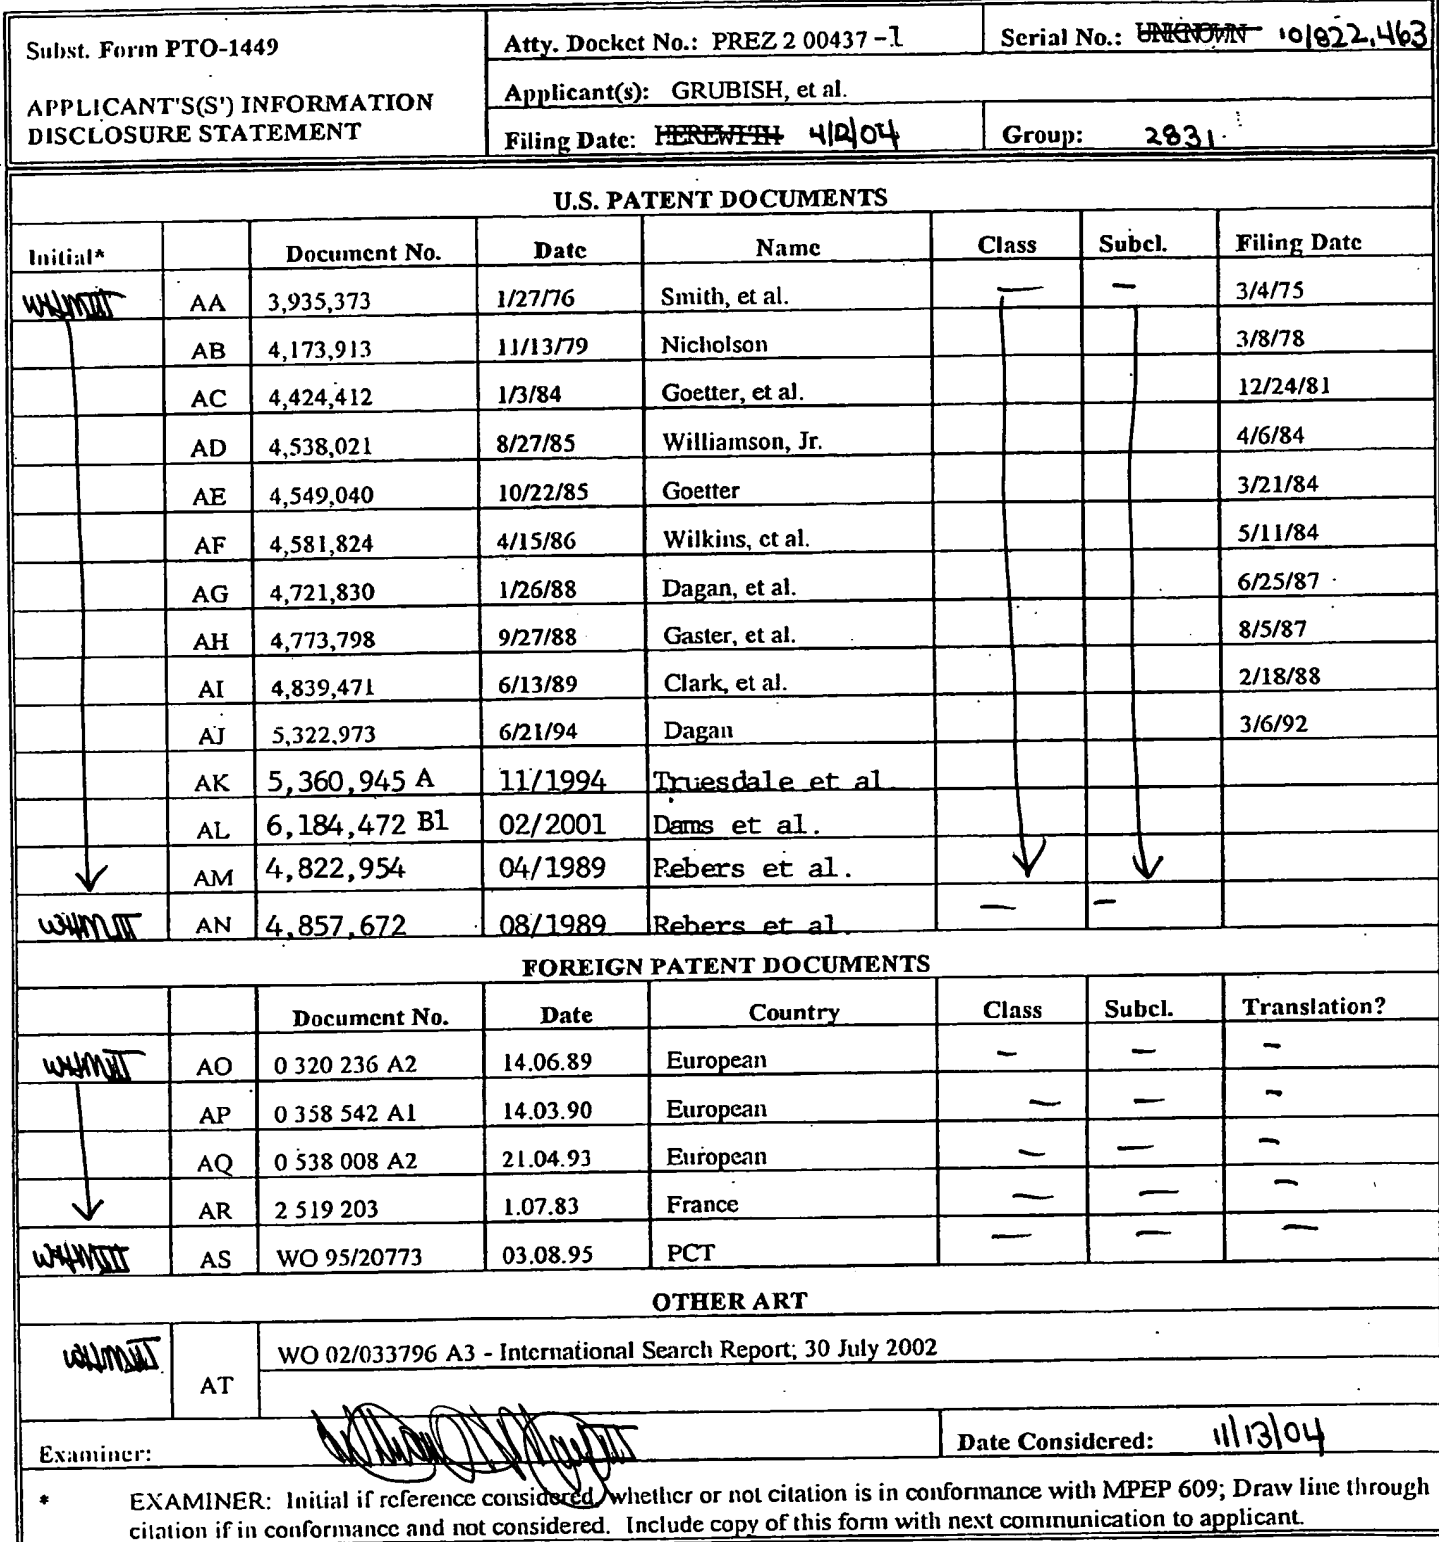 Subst. Form PTO-1449
APPLICANT'S(S') INFORMATION
DISCLOSURE STATEMENT
Atty. Docket No.: PREZ 2 00437 -1
Serial No.: UNKNOWN 10/822,463
Applicant(s): GRUBISH, et al.
Filing Date: HEREWITH 4/12/04
Group: 2831
U.S. PATENT DOCUMENTS
Initial* Document No. Date Name Class Subcl. Filing Date
WHMIII AA 3,935,373 1/27/76 Smith, et al. — — 3/4/75
AB 4,173,913 11/13/79 Nicholson 3/8/78
AC 4,424,412 1/3/84 Goetter, et al. 12/24/81
AD 4,538,021 8/27/85 Williamson, Jr. 4/6/84
AE 4,549,040 10/22/85 Goetter 3/21/84
AF 4,581,824 4/15/86 Wilkins, et al. 5/11/84
AG 4,721,830 1/26/88 Dagan, et al. 6/25/87
AH 4,773,798 9/27/88 Gaster, et al. 8/5/87
AI 4,839,471 6/13/89 Clark, et al. 2/18/88
AJ 5,322,973 6/21/94 Dagan 3/6/92
AK 5,360,945 A 11/1994 Truesdale et al
AL 6,184,472 B1 02/2001 Dams et al.
AM 4,822,954 04/1989 Rebers et al.
WHMIII AN 4,857,672 08/1989 Rebers et al. — —
FOREIGN PATENT DOCUMENTS
Document No. Date Country Class Subcl. Translation?
WHMIII AO 0 320 236 A2 14.06.89 European — — —
AP 0 358 542 A1 14.03.90 European — — —
AQ 0 538 008 A2 21.04.93 European — — —
AR 2 519 203 1.07.83 France — — —
WHMIII AS WO 95/20773 03.08.95 PCT — — —
OTHER ART
WHMIII AT WO 02/033796 A3 - International Search Report; 30 July 2002
Examiner:
Date Considered: 11/13/04
* EXAMINER: Initial if reference considered, whether or not citation is in conformance with MPEP 609; Draw line through
citation if in conformance and not considered. Include copy of this form with next communication to applicant.